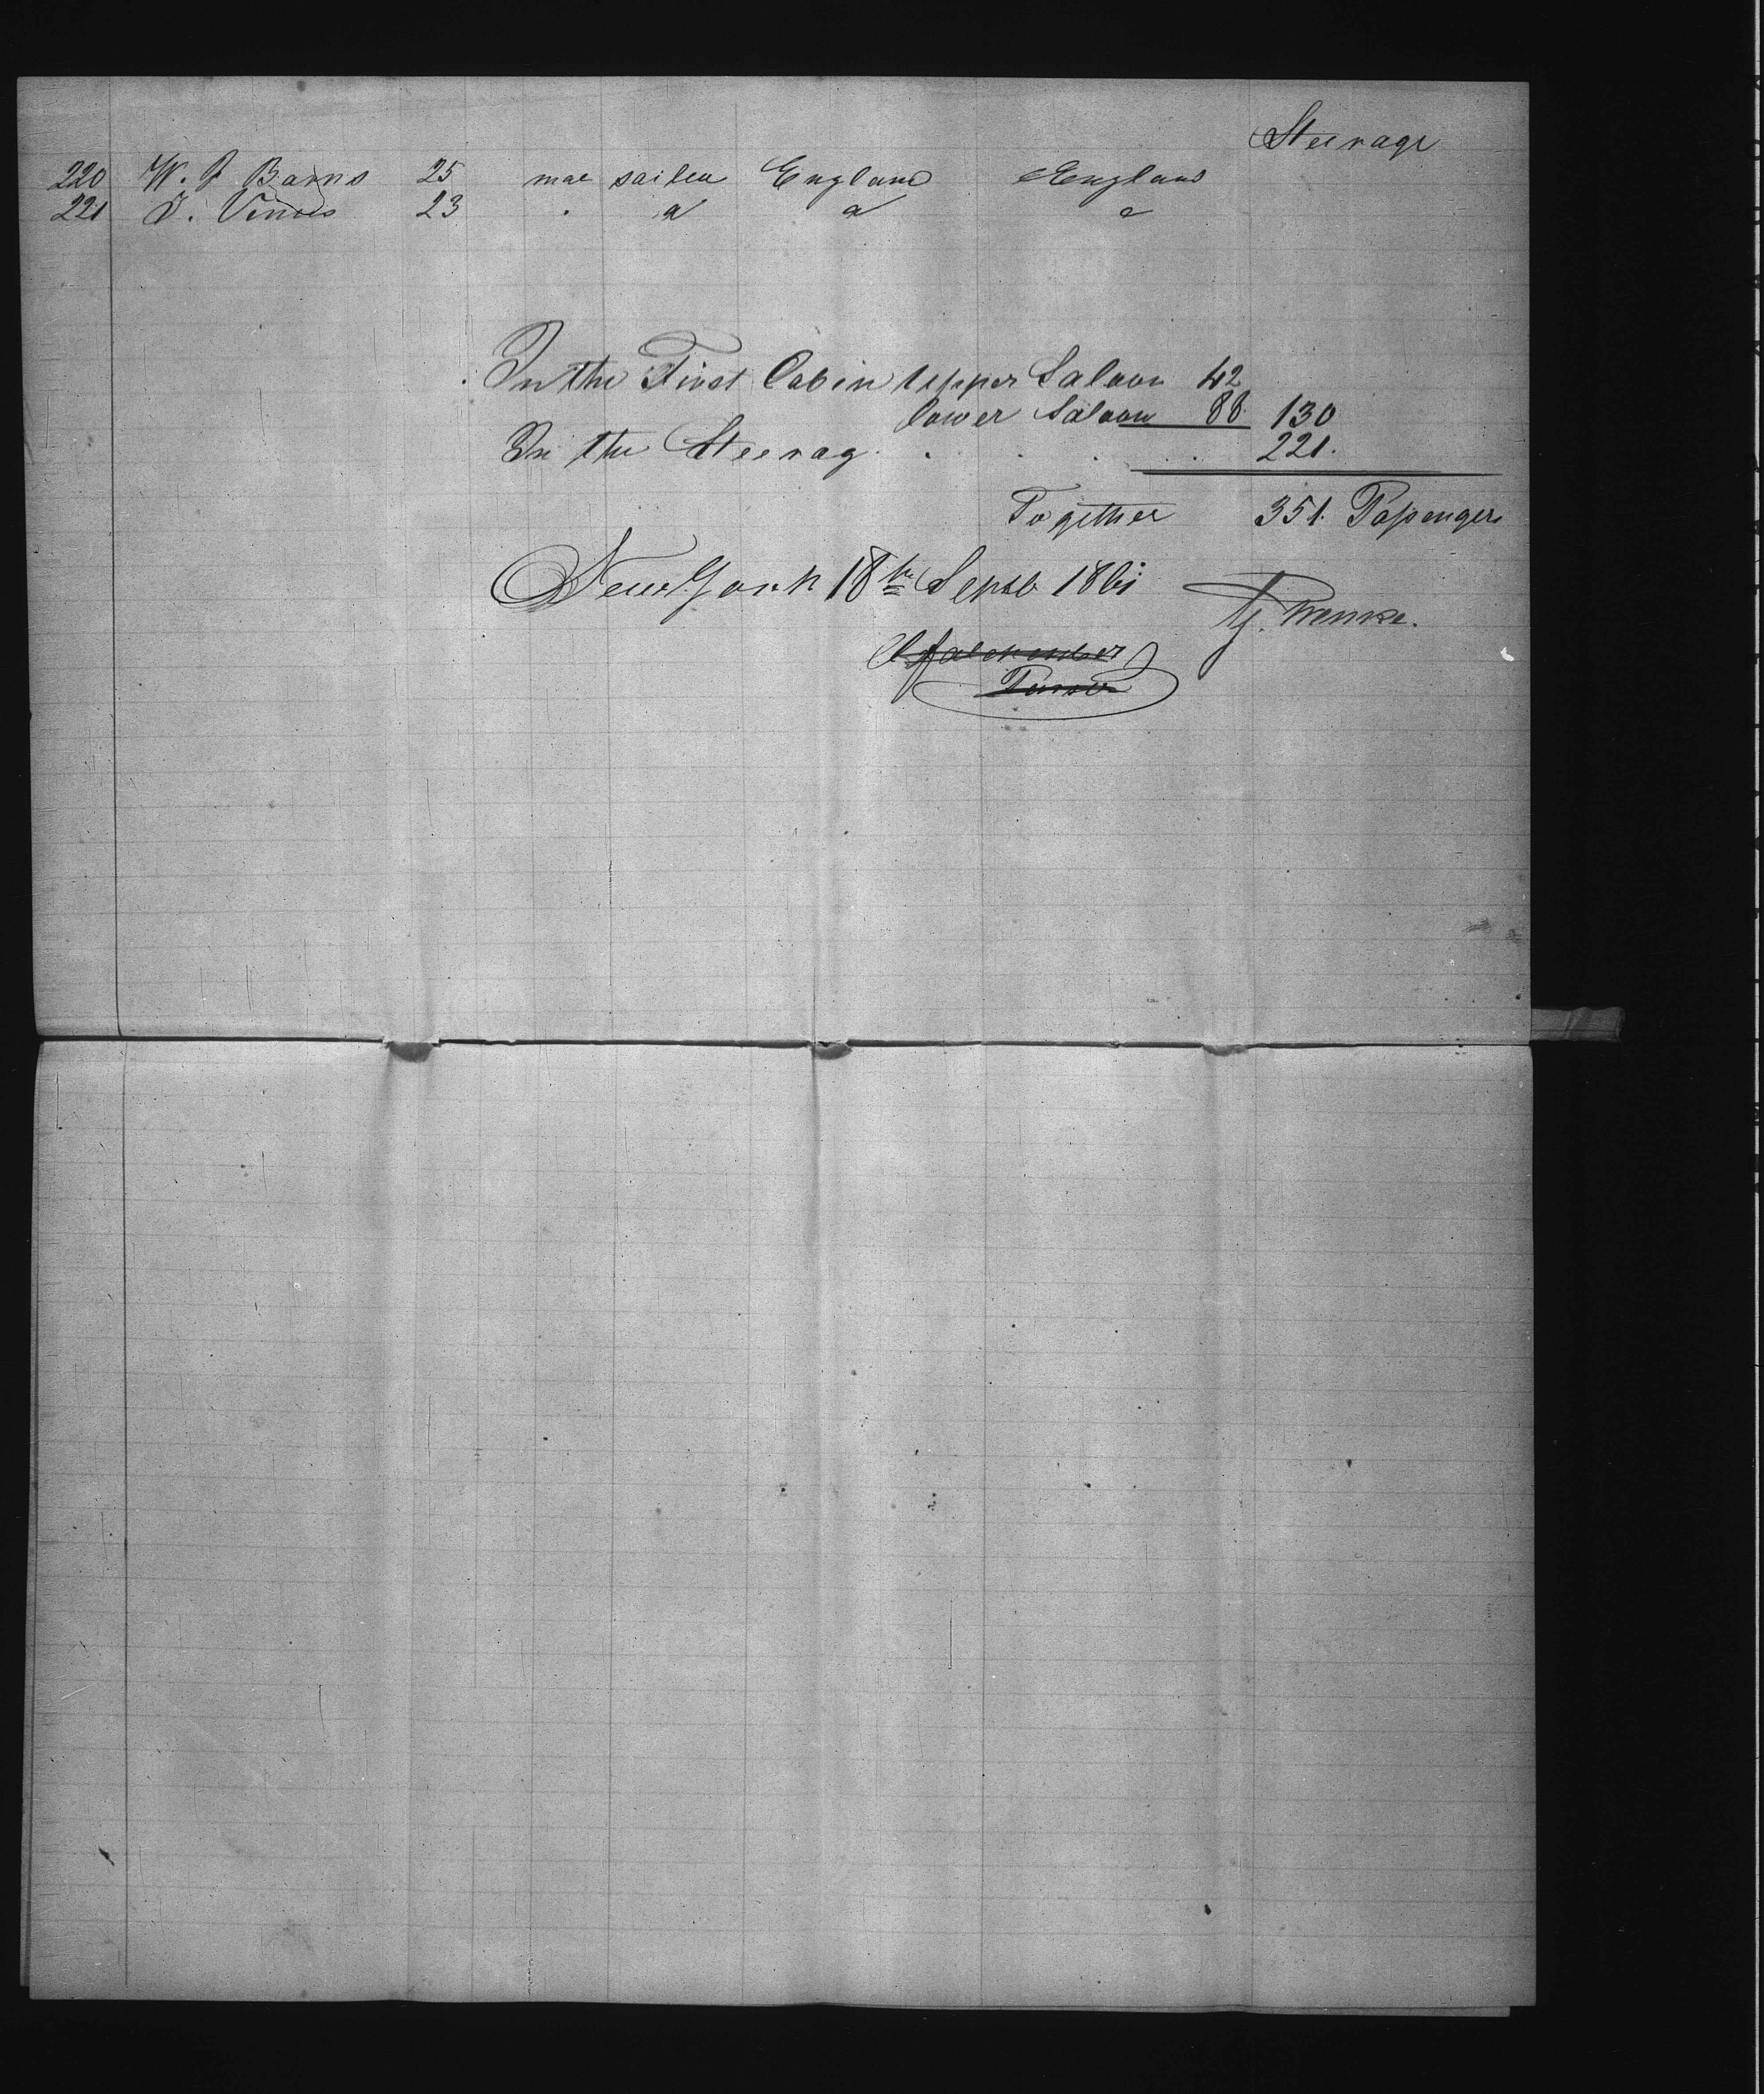 Steerage
220 W. J Barns 25 mae sailea England England
221 J. Vinois 23 " " " "
In the First Cabin Upper Saloon 42
lower Saloon 88 130
In the Steerag . . . . 221.
Together 351. Passengers
New York 18th Septb 1861
Purser